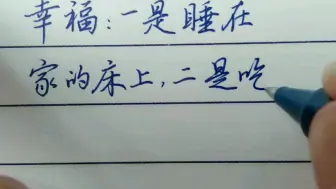 幸福:一是睡在
家的床上,二是吃